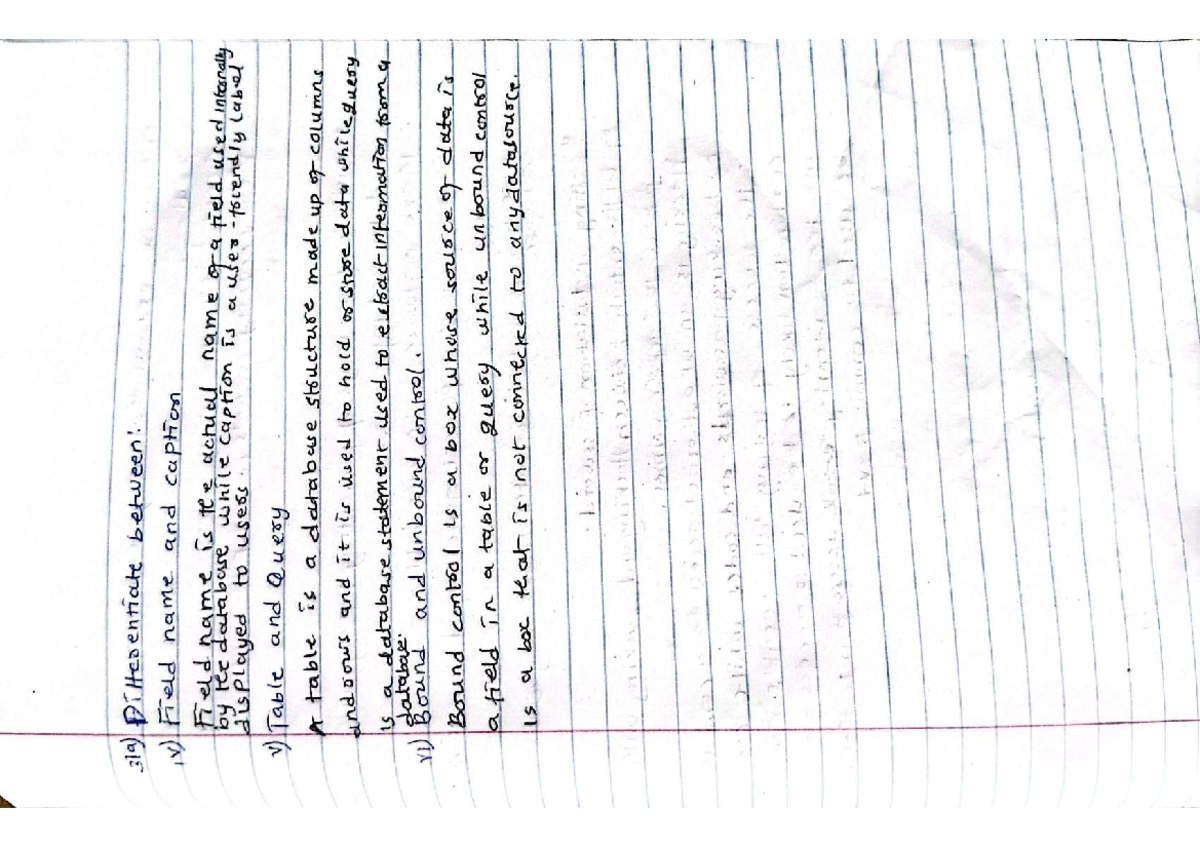 31a) Differentiate between:
iv) Field name and caption
Field name is the actual name of a field used internally
by the database while caption is a user-friendly label
displayed to users.
v) Table and Query
A table is a database structure made up of columns
and rows and it is used to hold or store data while query
is a database statement used to extract information from a
database.
vi) Bound and unbound control.
Bound control is a box whose source of data is
a field in a table or query while unbound control
is a box that is not connected to any datasource.